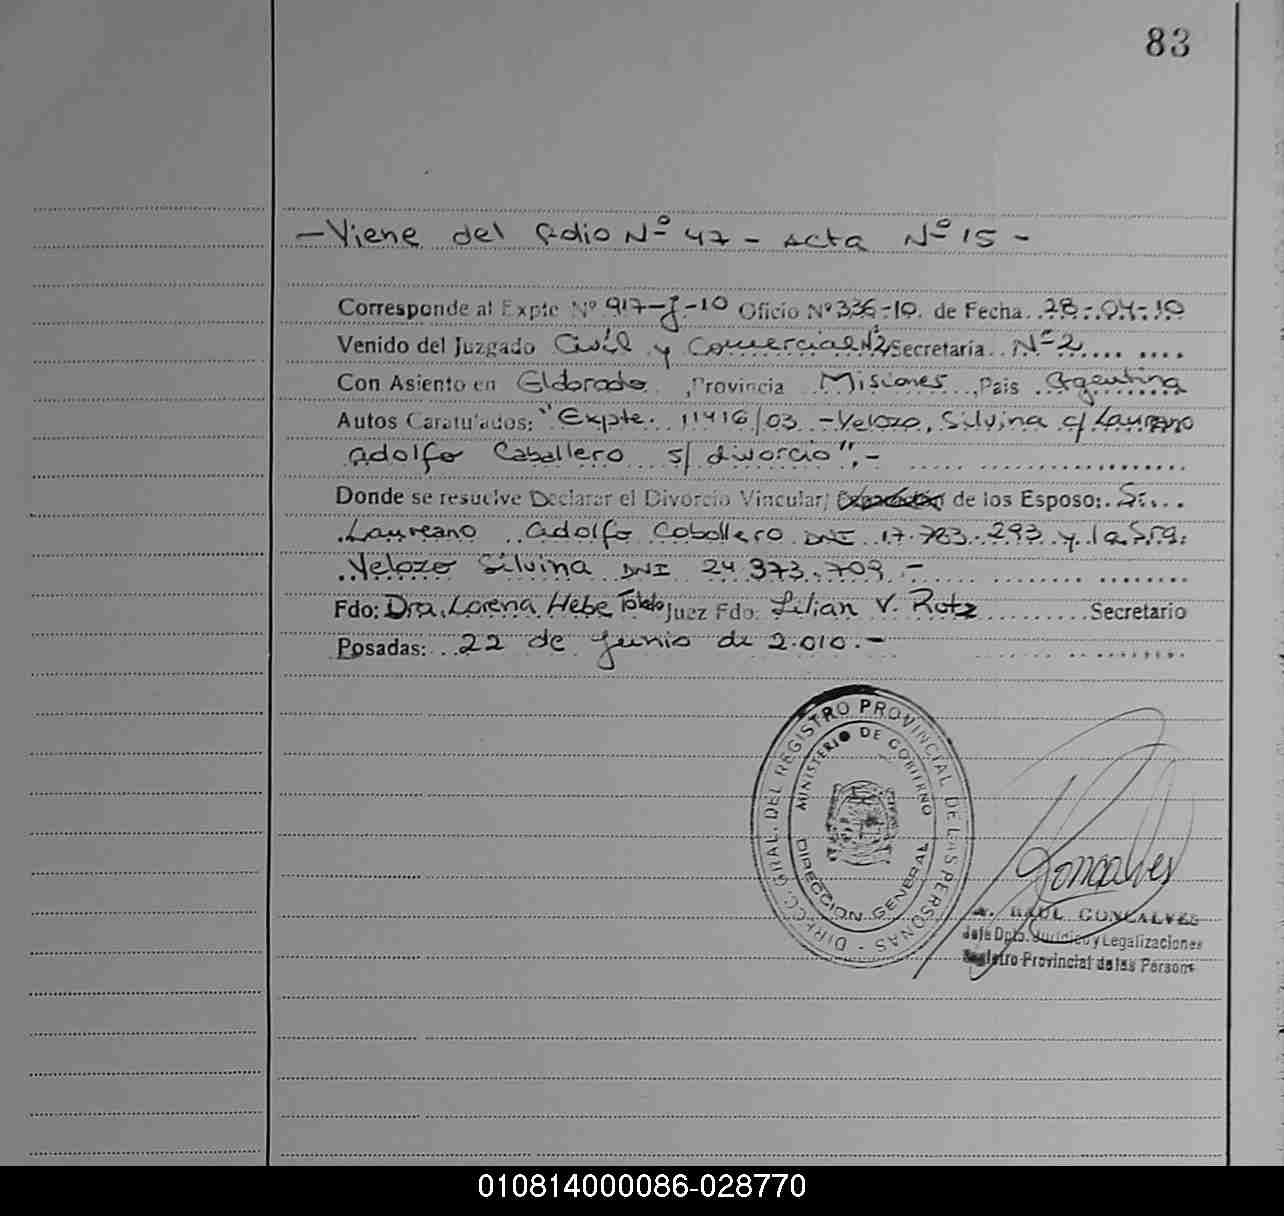 83
- Viene del folio Nº 47 - Acta Nº 15 -
Corresponde al Expte Nº 917-J-10 Oficio Nº 336-10. de Fecha. 28-04-10
Venido del Juzgado Civil y Comercial Nº2 Secretaría Nº 2
Con Asiento en Eldorado, Provincia Misiones, País Argentina
Autos Caratulados: "Expte. 11416/03 - Velozo, Silvina c/ Laureano
Adolfo Caballero s/ divorcio". -
Donde se resuelve Declarar el Divorcio Vincular/ de los Esposo: Sr.
Laureano Adolfo Caballero DNI 17.783.293 y la Sra.
Velozo Silvina DNI 24.373.709. -
Fdo: Dra. Lorena Hebe Toledo Juez Fdo. Lilian V. Rotz Secretario
Posadas: 22 de Junio de 2.010. -
DIRECC. GRAL. DEL REGISTRO PROVINCIAL DE LAS PERSONAS -
MINISTERIO DE GOBIERNO
DIRECCION GENERAL
Goncalves
RAUL GONCALVES
Jefe Dpto. Jurídico y Legalizaciones
Registro Provincial de las Person
010814000086-028770